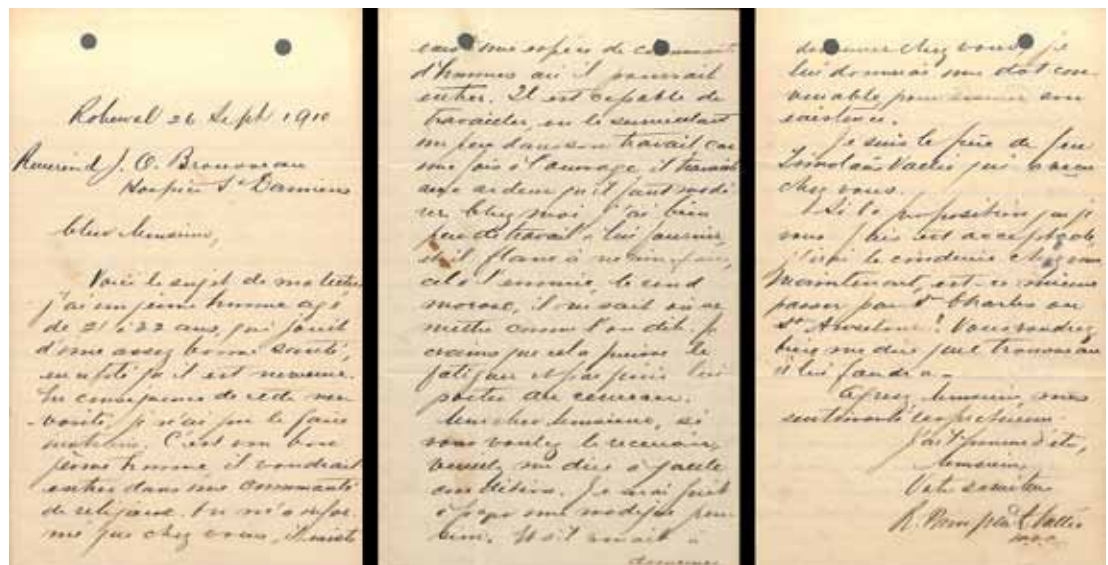 Roberval 26 Sept 1910
Révérend J. O. Brousseau
Hospice St Damiens
Cher Monsieur,
Voici le sujet de ma lettre
j'ai un jeune homme agé
de 21 à 22 ans, qui jouit
d'une assez bonne santé,
en a côté qu'il est nerveux.
En conséquence de cette ner
-vosité, je n'ai pu le faire
instruire. C'est un bon
jeune homme il voudrait
entrer dans une communauté
de religieux. On m'a infor
mé que chez vous, il existe
une espèce de communauté
d'hommes où il pourrait
entrer. Il est capable de
travailler, en le surveillant
un peu dans son travail car
une fois à l'ouvrage il travaille
avec ardeur qu'il faut modé
rer. Chez moi j'ai bien
peu de travail à lui fournir,
s'il flane à ne rien faire,
cela l'ennuie, le rend
morose, il ne sait où se
mettre comme l'on dit. Je
crains que cela puisse le
fatiguer et pas puis lui
porter au cerveau.
Mon cher Monsieur, si
vous voulez le recevoir,
veuillez me dire à quelle
condition. Je serai prêt
à payer une modique pen
sion. Et s'il venait à
demeurer
demeurer chez vous, je
lui donnerais une dot con
venable pour assurer son
existence.
Je suis le père de feu
Vallée qui
chez vous.
Si la proposition que je
vous fais est acceptable,
j'irai le conduire chez vous
Maintenant, est-ce mieux
passer par St Charles ou
St Anselme? Vous voudrez
bien me dire quel trousseau
il lui faudra.
Agréez, Monsieur, mes
sentiments respectueux
J'ai l'honneur d'être,
Monsieur,
Votre serviteur
R. Vallée